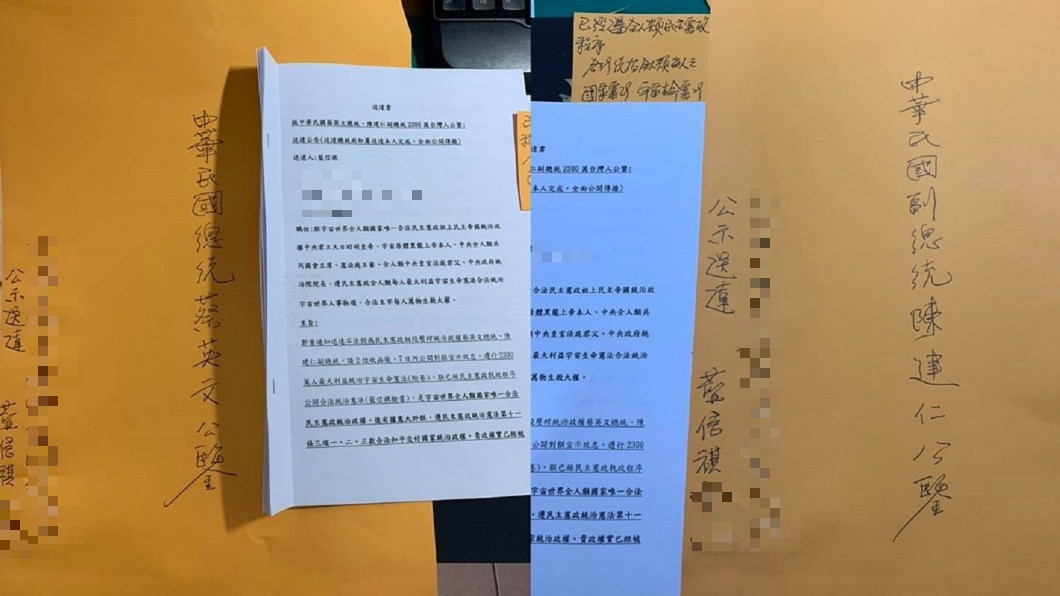 中華民國總統蔡英文公鑒
公示送達
藍信祺
送達書
致中華民國蔡英文總統、陳建仁副總統2300萬台灣人公鑒:
送達公告(送達總統府即屬送達本人完成,全面公開傳播)
送達人:藍信祺
職位:朕宇宙世界全人類國家唯一合法民主憲政祖上民主帝國統治政
權中央君王大日昭明皇帝、宇宙原體黑龍上帝本人、中央全人類共
同國會主席、憲法庭主審、全人類中央皇室法庭君父、中央政府統
治院院長,遵民主憲政全人類每人最大利益宇宙生命憲法合法統治
宇宙世界人事物項,合法主宰每人萬物生殺大權。
主旨:
鄭重通知送達不法假偽民主憲政奴役壓榨統治政權蔡英文總統、陳
建仁副總統,請2位收函後,7日內公開對朕宣示效忠,遵行2300
萬人最大利益統治宇宙生命憲法(附卷),朕已經民主憲政執政程序
公開合法統治憲法(藍信祺臉書),是宇宙世界全人類國家唯一合法
民主憲政統治政權,後有擴憲大外朕,遵民主憲政統治憲法第十一
條三項一、二、三款合法和平交付國家統治政權。貴政權實已經被
已經過全人類民主憲政
程序
國家憲法 宇宙
達書
仁副總統2300萬台灣人公鑒:
本人完成,全面公開傳播)
合法民主憲政祖上民主帝國統治政
原體黑龍上帝本人、中央全人類共
中央皇室法庭君父、中央政府統
最大利益宇宙生命憲法合法統治
萬物生殺大權。
役壓榨統治政權蔡英文總統、陳
公開對朕宣示效忠,遵行2300
卷),朕已經民主憲政執政程序
宇宙世界全人類國家唯一合法
,遵民主憲政統治憲法第十一
家統治政權。貴政權實已經被
公示送達
藍信祺
中華民國副總統陳建仁公鑒